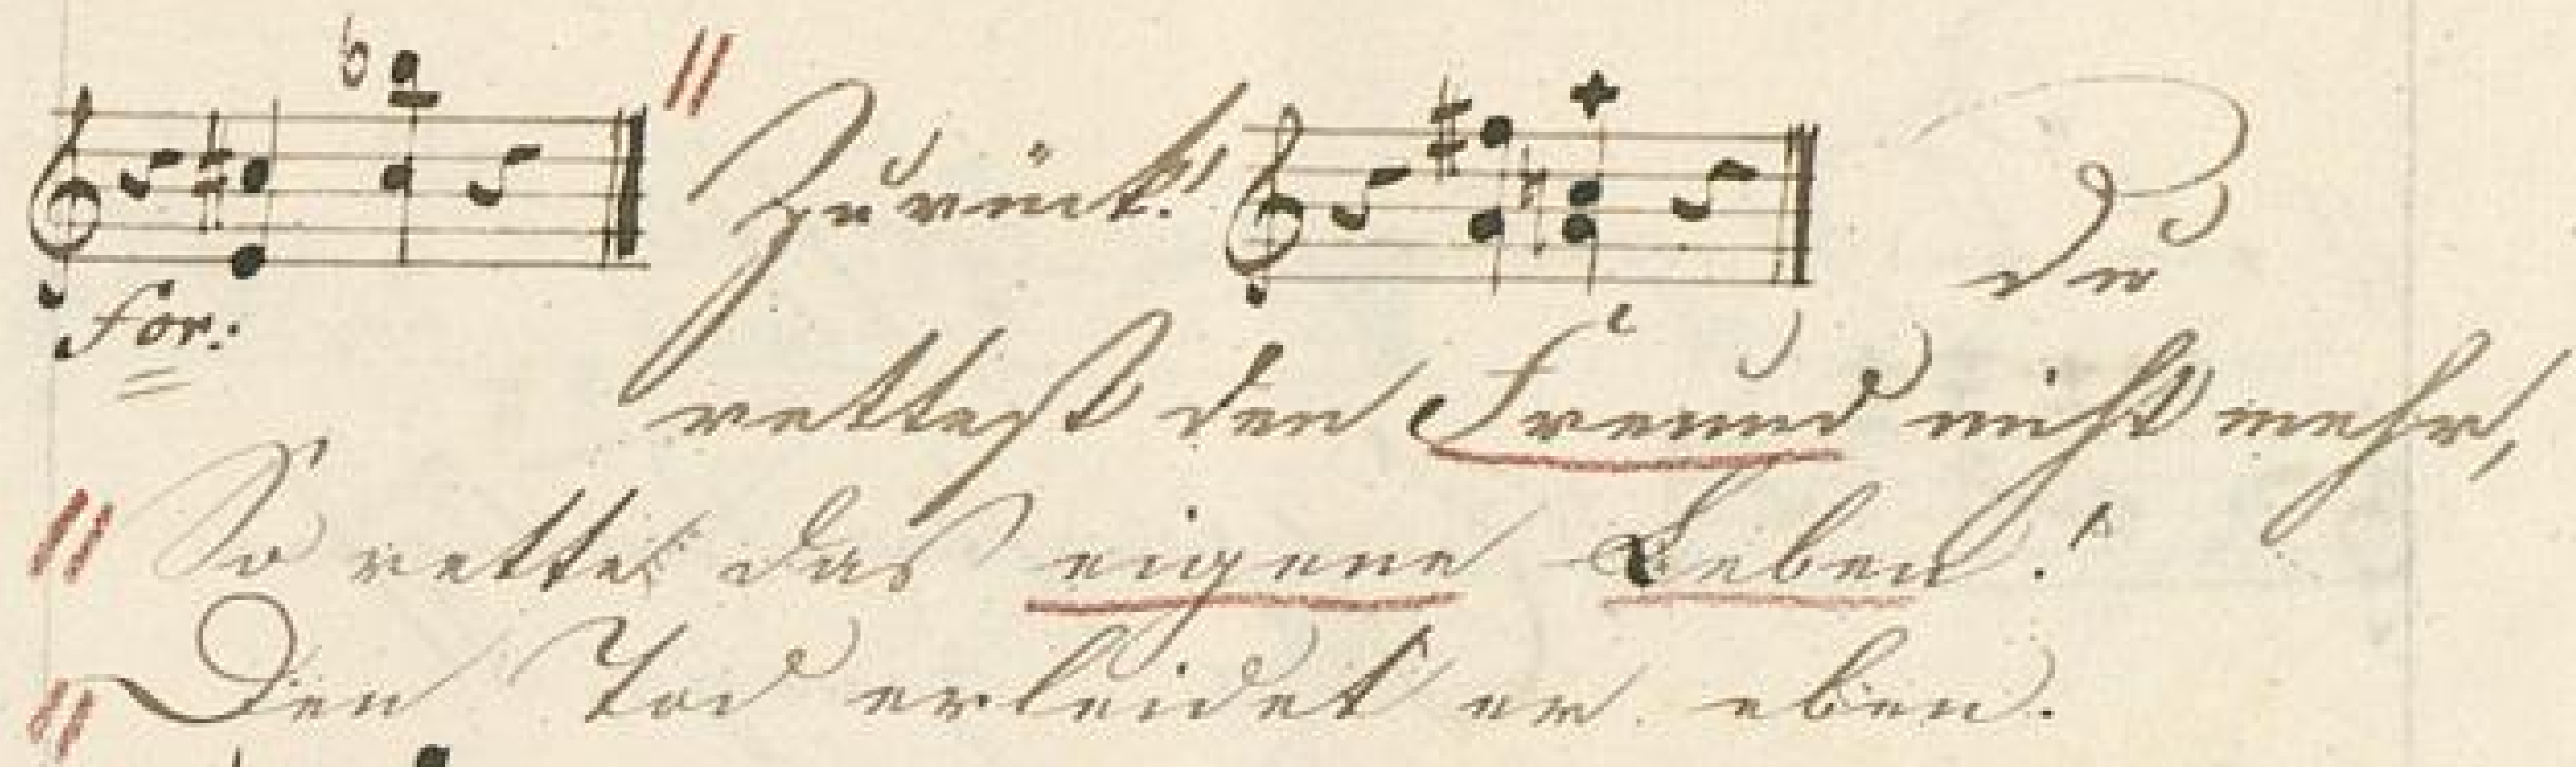 Zurück! Du
For:
rettest den Freund nicht mehr,
So rette das eigene Leben!
Den Tod erleidet er eben.